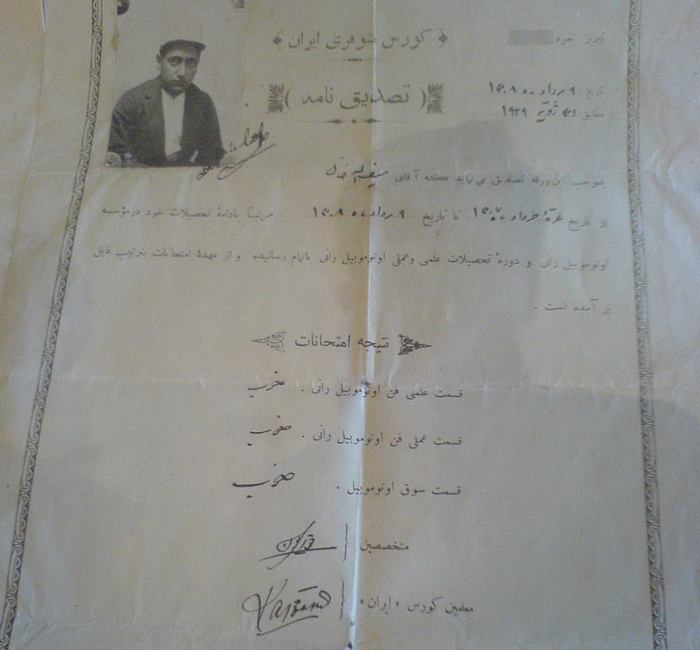 ﴿ کورس شوفری ایران ﴾
تبریز نمره
( تصدیق نامه )
تاریخ ۹ مرداد ماه ۱۳۰۸
مطابق ۳۱ ژویه ۱۹۲۹
بموجب این ورقه تصدیق می نماید که آقای
از تاریخ خرداد ۱۳۰۷ تا تاریخ ۹ مرداد ماه ۱۳۰۸ مرتباً بادامهٔ تحصیلات خود در مؤسسه
اوتوموبیل رانی و دورهٔ تحصیلات علمی وعملی اوتوموبیل رانی باتمام رسانیده و از عهدهٔ امتحانات بترتیب ذیل
بر آمده است .
نتیجه امتحانات
قسمت علمی فن اوتوموبیل رانی . خوب
قسمت عملی فن اوتوموبیل رانی . خوب
قسمت سوق اوتوموبیل . خوب
متخصصین
معلمین کورس «ایران»